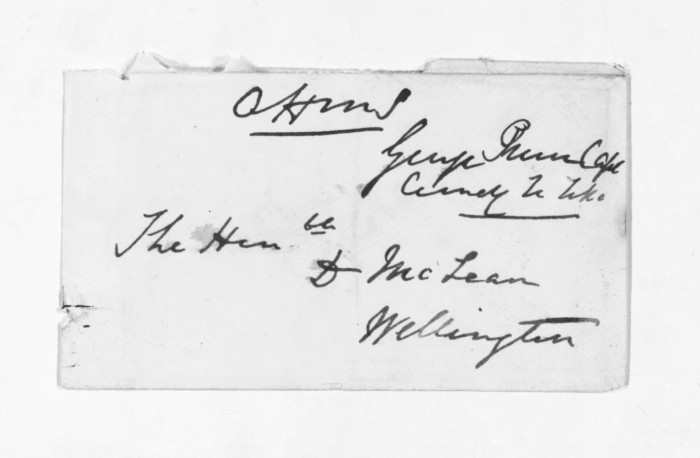 OHMS
George Preece Capt
Comdg Te Teko
The Honble
D McLean
Wellington